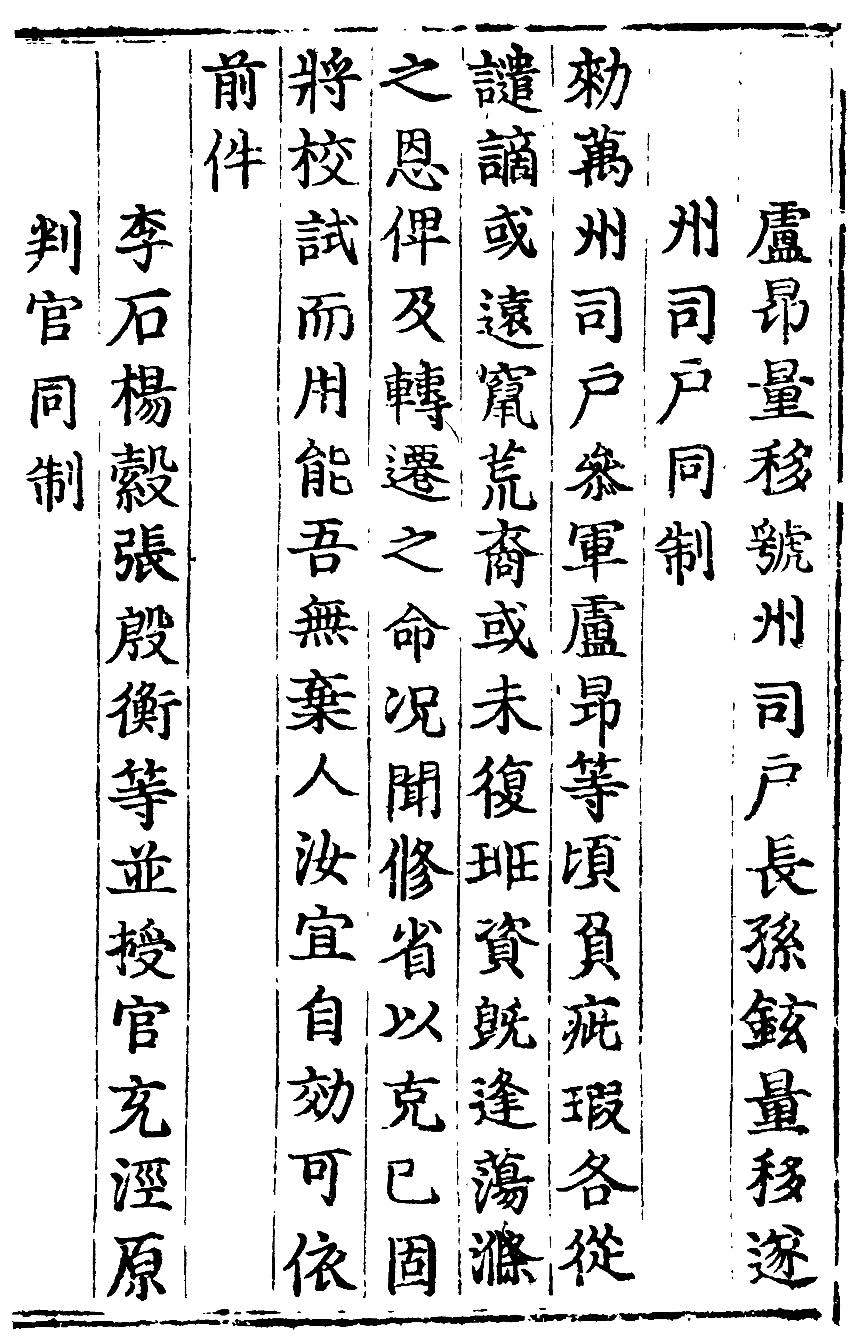 盧昂量移虢州司戶長孫鉉量移遂
州司戶同制
勑萬州司戶叅軍盧昂等頃負疵瑕各從
譴謫或遠竄荒裔或未復班資旣逢蕩滌
之恩俾及轉遷之命況聞修省以克已固
將校試而用能吾無棄人汝宜自効可依
前件
李石楊縠張殷衡等並授官充涇原
判官同制